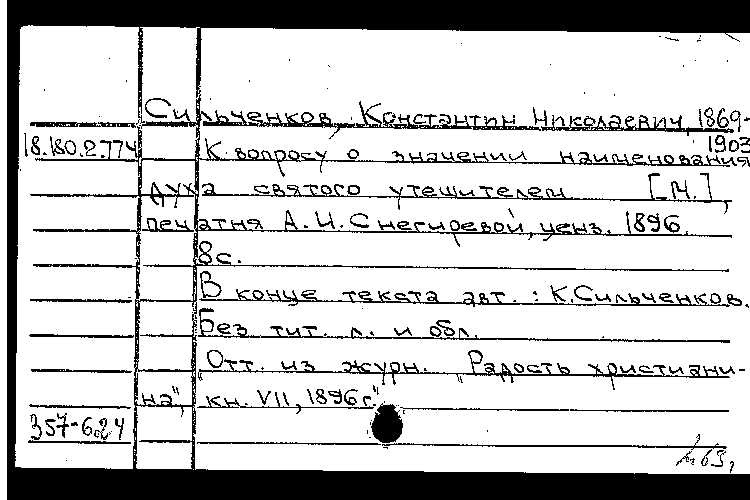 Сильченков, Константин Николаевич, 1869-
1903
18.180.2.774
К вопросу о значении наименования
духа святого утешителем. [М.],
печатня А.И.Снегиревой, ценз. 1896.
8с.
В конце текста авт. : К.Сильченков.
Без тит. л. и обл.
Отт. из журн. "Радость христиани-
на", кн. VII, 1896 г."
357-62.4